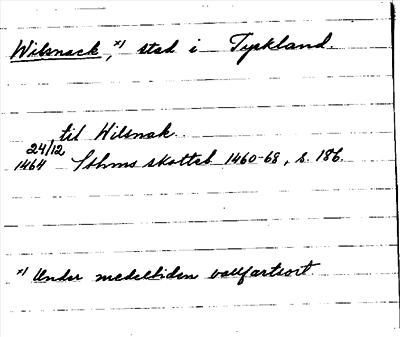 Wilsnack, x) stad i Tyskland.
til Wilsnak.
24/12
1464 Sthms skotteb. 1460-68, s. 186.
x) Under medeltiden vallfartsort.